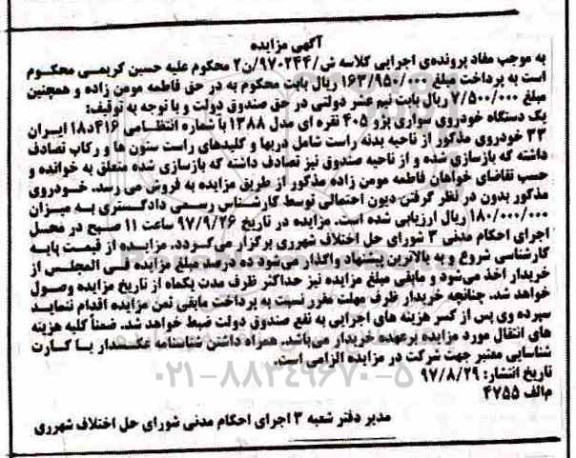 آگهی مزایده
به موجب مفاد پرونده‌ی اجرایی کلاسه ش/۹۷۰۲۴۴/ن۲ محکوم علیه حسین کریمی محکوم
است به پرداخت مبلغ ۱۶۳/۹۵۰/۰۰۰ ریال بابت محکوم به در حق فاطمه مومن زاده و همچنین
مبلغ ۷/۵۰۰/۰۰۰ ریال بابت نیم عشر دولتی در حق صندوق دولت و با توجه به توقیف:
یک دستگاه خودروی سواری پژو ۴۰۵ نقره ای مدل ۱۳۸۸ با شماره انتظامی ۴۱۶د۱۸ ایران
۳۳ خودروی مذکور از ناحیه بدنه راست شامل دربها و گلیدهای راست ستون ها و رکاب تصادف
داشته که بازسازی شده و از ناحیه صندوق نیز تصادف داشته که بازسازی شده متعلق به خوانده و
حسب تقاضای خواهان فاطمه مومن زاده مذکور از طریق مزایده به فروش می رسد. خودروی
مذکور بدون در نظر گرفتن دیون احتمالی توسط کارشناس رسمی دادگستری به میزان
۱۸۰/۰۰۰/۰۰۰ ریال ارزیابی شده است. مزایده در تاریخ ۹۷/۹/۲۶ ساعت ۱۱ صبح در محل
اجرای احکام مدنی ۳ شورای حل اختلاف شهرری برگزار می‌گردد. مزایده از قیمت پایه
کارشناسی شروع و به بالاترین پیشنهاد واگذار می‌شود ده درصد مبلغ مزایده فی المجلس از
خریدار اخذ می‌شود و مابقی مبلغ مزایده نیز حداکثر ظرف مدت یکماه از تاریخ مزایده وصول
خواهد شد. چنانچه خریدار ظرف مهلت مقرر نسبت به پرداخت مابقی ثمن مزایده اقدام ننماید
سپرده وی پس از کسر هزینه های اجرایی به نفع صندوق دولت ضبط خواهد شد. ضمناً کلیه هزینه
های انتقال مورد مزایده برعهده خریدار می‌باشد. همراه داشتن شناسنامه عکسدار یا کارت
شناسایی معتبر جهت شرکت در مزایده الزامی است.
تاریخ انتشار: ۹۷/۸/۲۹
م/الف ۴۷۵۵
۰۲۱-۸۸۳۴۹۶۷۰-۵
مدیر دفتر شعبه ۳ اجرای احکام مدنی شورای حل اختلاف شهرری